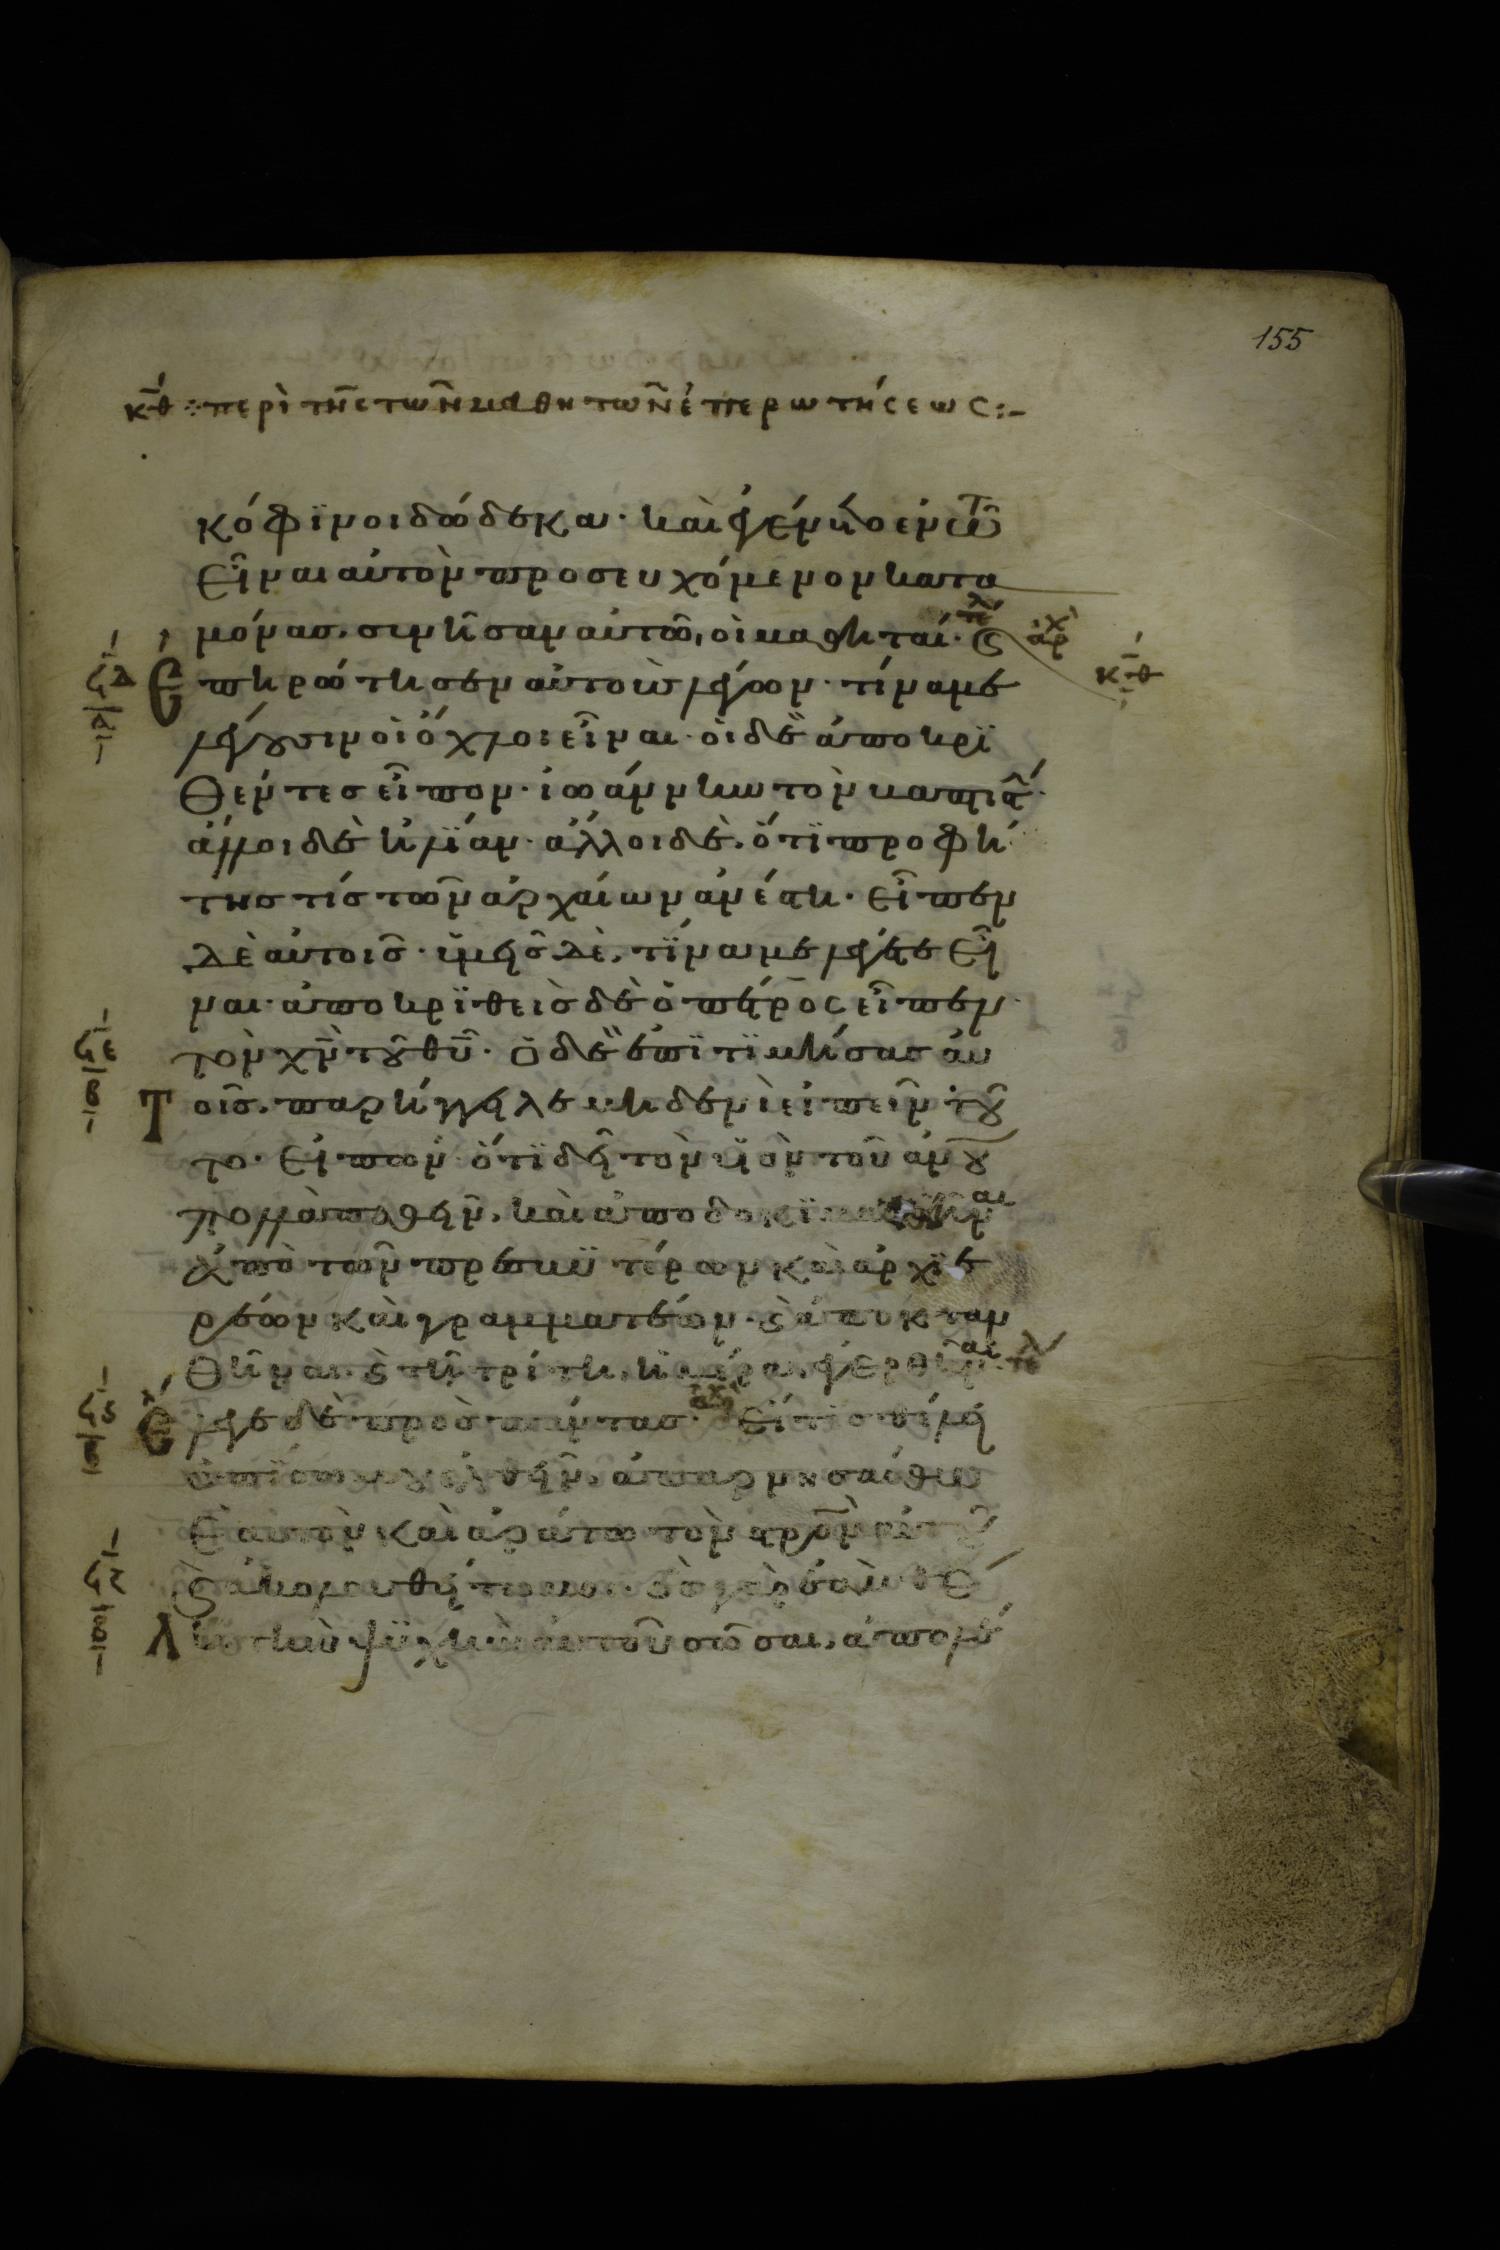 155
κθ ⁘ περὶ τῆς τῶν μαθητῶν ἐπερωτήσεως :-
κόφϊνοι δώδεκα · καὶ ἐγένετο ἐν τῶ
εἶναι αὐτὸν προσευχόμενον κατα
μόνας, συνῆσαν αὐτῶ, οἱ μαθηταί · τλ ϛ αρχ
ϟδ α Ἐπηρώτησεν αὐτοὺς λέγων · τίνα με κθ
λέγουσιν οἱ ὄχλοι εἶναι · οἱ δὲ ἀποκρϊ
θέντες εἶπον · ἰωάννην τὸν βαπτιστ ·
ἄλλοι δὲ ἡλΐαν · ἄλλοι δὲ, ὅτϊ προφή
της τίς τῶν ἀρχαίων ἀνέστη · εἶπεν
δὲ αὐτοῖς · ὑμεῖς δὲ, τΐνα με λέγετε εἶ
ναι · ἀποκρϊθεὶς δὲ ὁ πέτρος εἶπεν ·
ϟε β τὸν χν τοῦ θυ · ὁ δὲ ἐπϊτϊμήσας αὐ
Τοῖς, παρήγγειλε μηδενὶ εἰπεῖν τοῦ
το · εἰπὼν ὅτϊ δεῖ τὸν υἱὸν τοῦ ἀνου
πολλὰ παθεῖν, καὶ ἀποδοκϊμασθῆναι
ἀπὸ τῶν πρεσβϋτέρων καὶ ἀρχϊε
ρέων καὶ γραμματέων · ϛ ἀποκταν
θῆναι · ϛ τῆ τρίτη, ἡμέρα, ἐγερθῆναι · τλ
ϟϛ β Ἔλεγε δὲ πρὸς πάντας · αρχ εἴ τις θέλει
ὀπΐσω μου ἐλθεῖν, ἀπαρνησάσθω
ἑαυτὸν καὶ ἀράτω τὸν στρον αὐτοῦ
ϛ ἀκολουθείτω μοι · ὃς γὰρ ἐὰν θέ
ϟζ β Λη τὴν ψϋχὴν αὐτοῦ σῶσαι, ἀπολέ